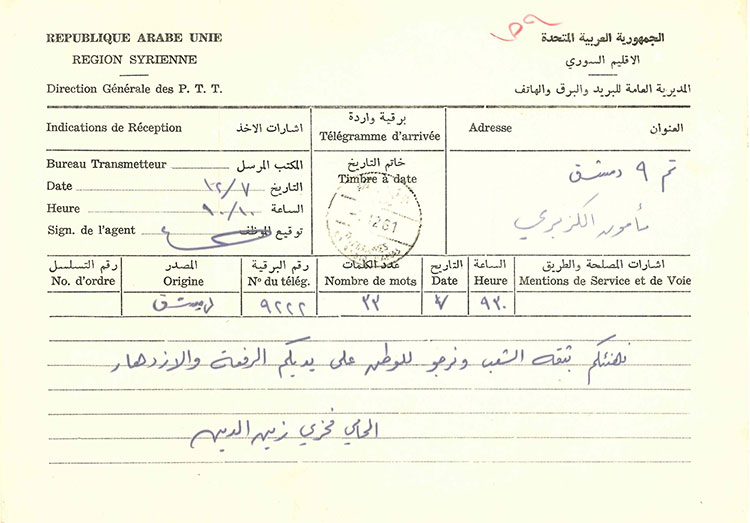 REPUBLIQUE ARABE UNIE
REGION SYRIENNE
Direction Générale des P. T. T.
٥٩
الجمهورية العربية المتحدة
الاقليم السوري
المديرية العامة للبريد والبرق والهاتف
Indications de Réception اشارات الاخذ
برقية واردة
Télégramme d'arrivée
Adresse العنوان
Bureau Transmetteur المكتب المرسل
Date ١٢/٧ التاريخ
Heure الساعة
Sign. de l'agent توقيع الموظف
خاتم التاريخ
Timbre à date
12 61
تم ٩ دمشق
مأمون الكزبري
رقم التسلسل المصدر رقم البرقية عدد الكلمات التاريخ الساعة اشارات المصلحة والطريق
No. d'ordre Origine Nº du télég. Nombre de mots Date Heure Mentions de Service et de Voie
دمشق ٩٢٢٢ ٣٣ ٧ ٩٣٠
نهنئكم بثقة الشعب ونرجو للوطن على يديكم الرفعة والازدهار
المحامي فخري زين الدين